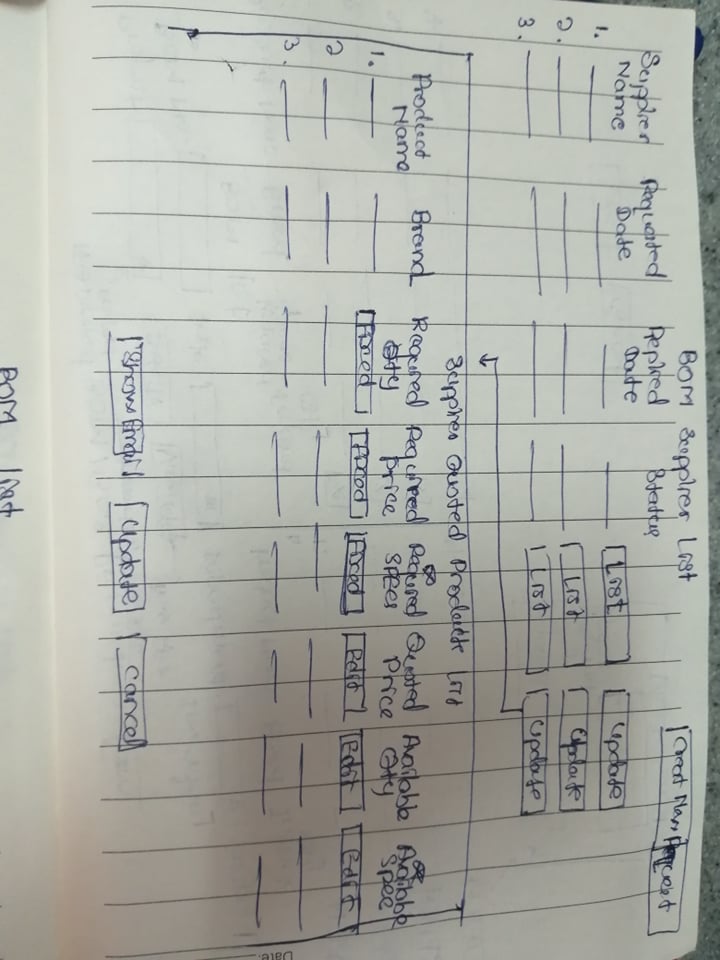 BOM Supplier List
Creat New Request
Supplier Name Requested Date Replied Date Status
1. List Update
2. List Update
3. List Update
Supplier Quoted Products List
Product Name Brand Required Qty Required Price Required Specs Quoted Price Available Qty Available Spec
1. Fixed Fixed Fixed Edit Edit Edit
2
3.
Show Email Update Cancel
Date:
BOM List